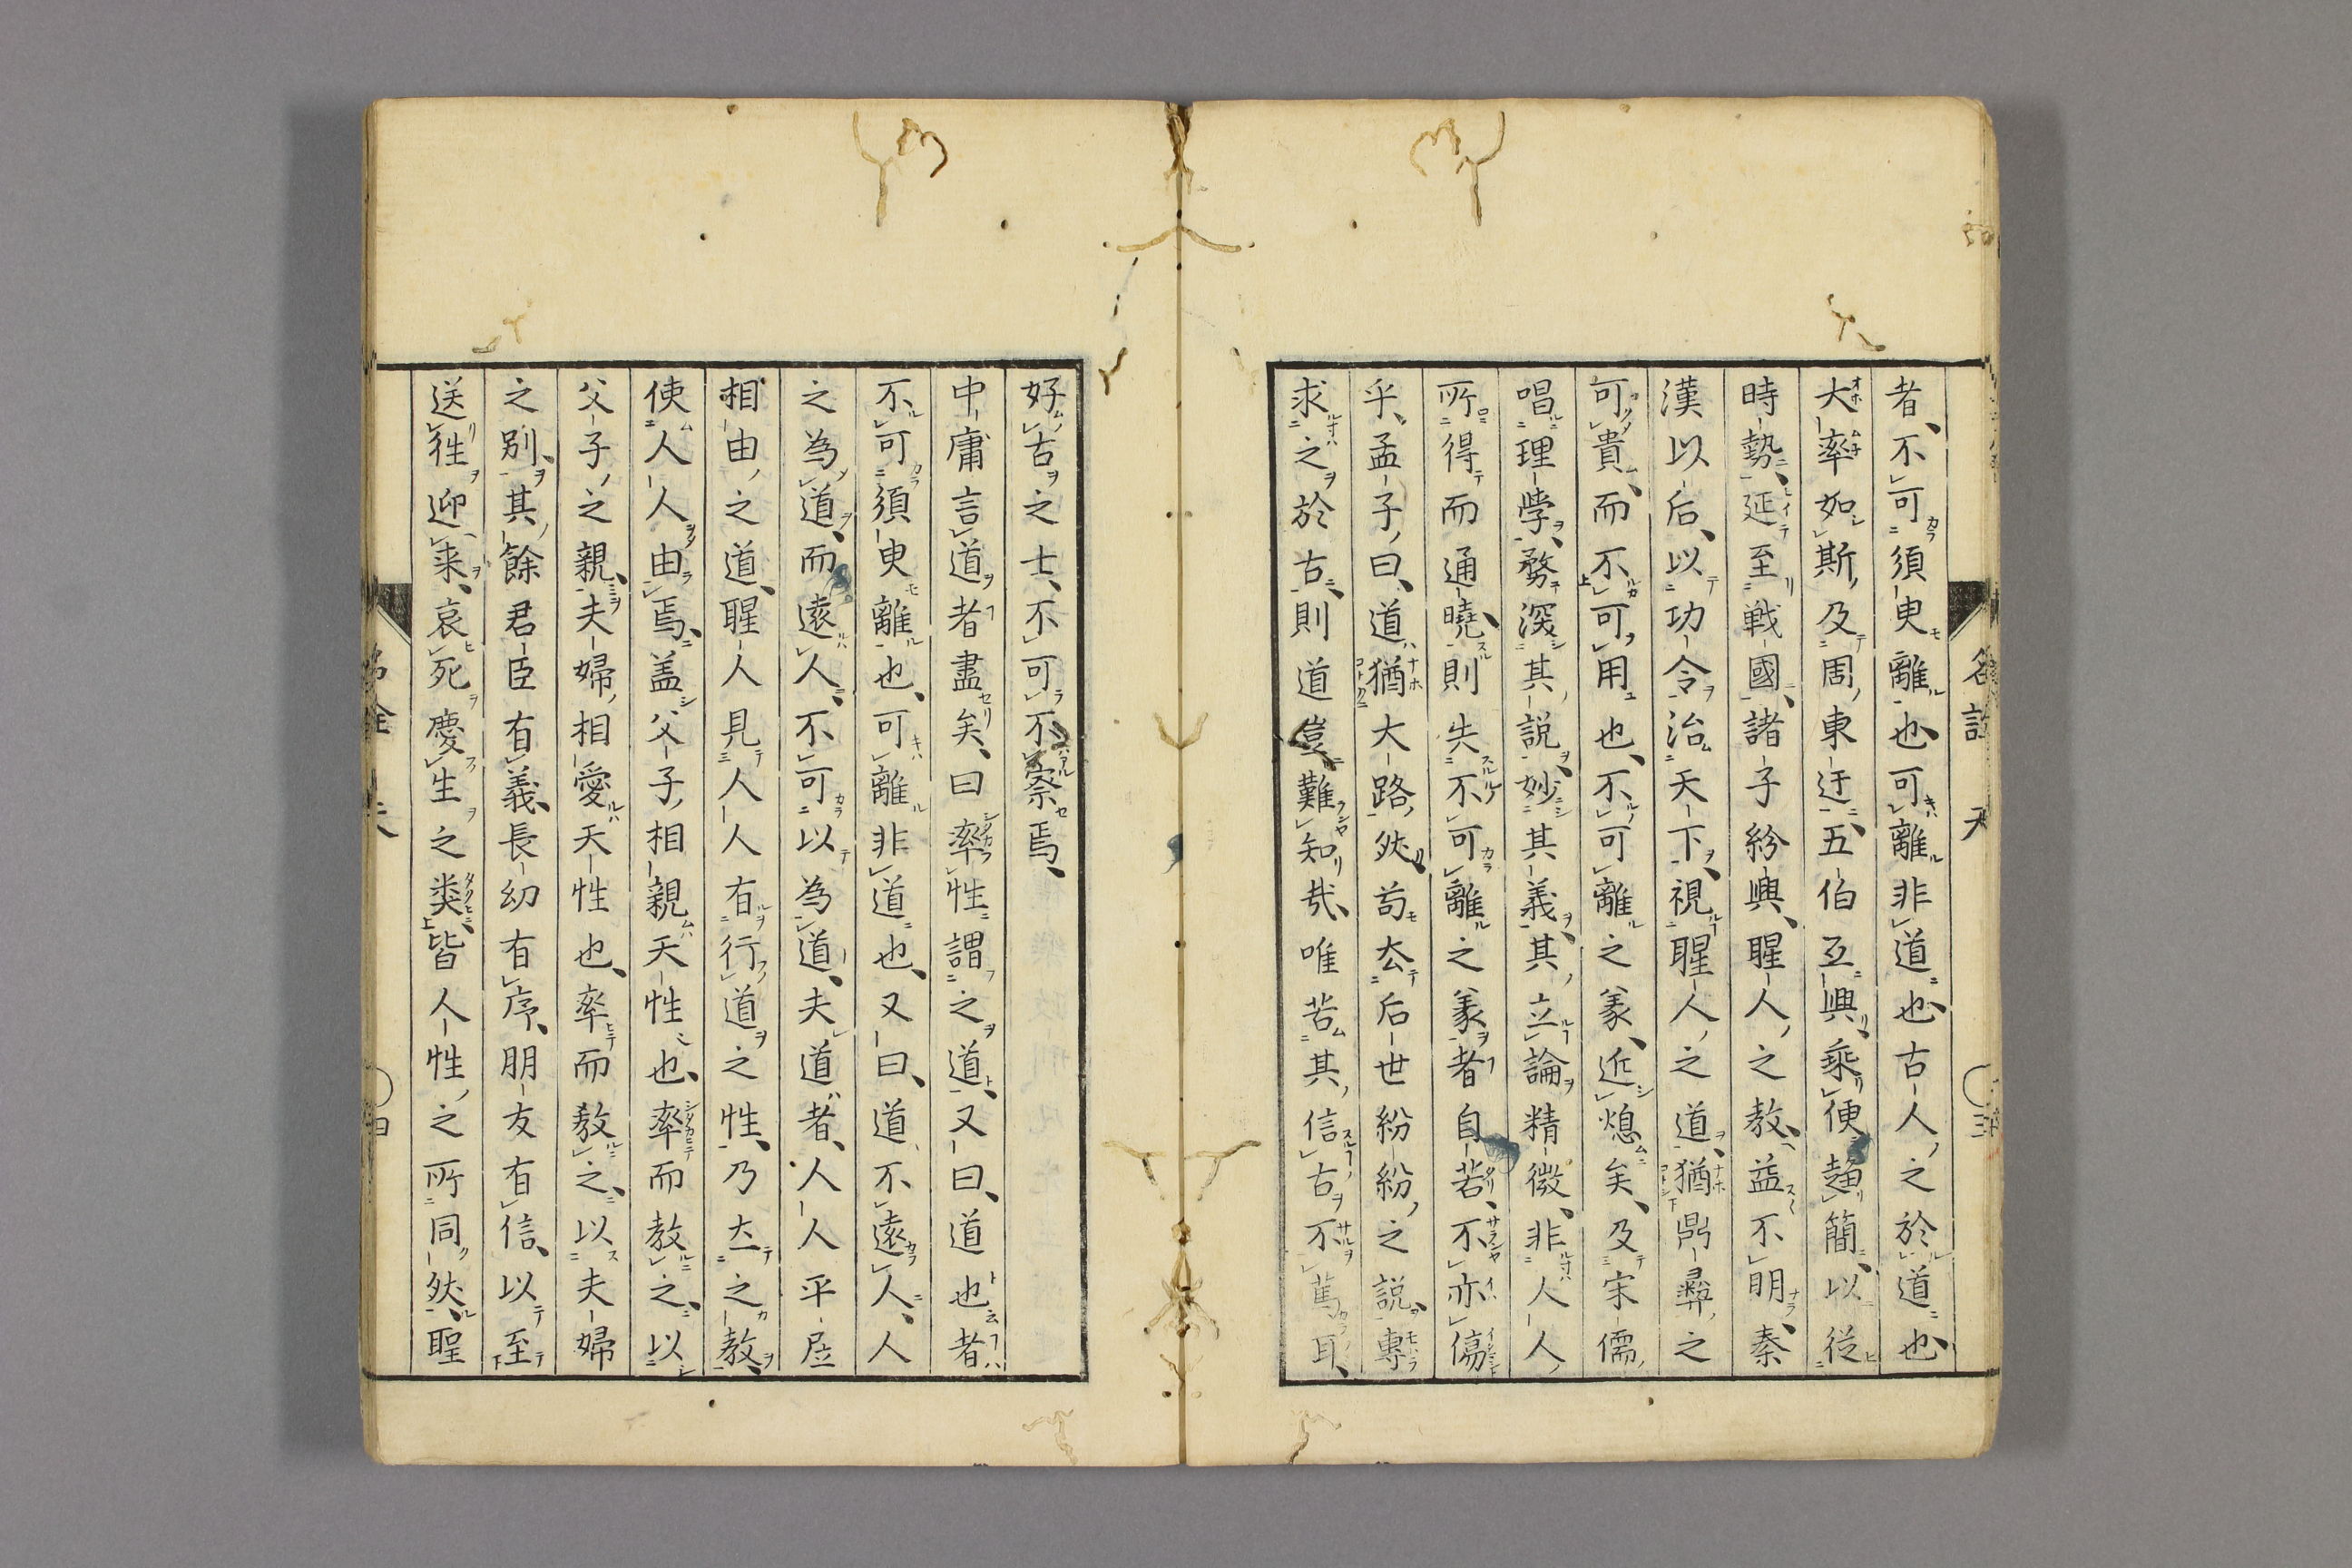 者、不可須臾離也、可離非道也、古人之於道也、
大率如斯、及周東迁、五伯互興、乘便趨簡、以従
時勢、延至戦國、諸子紛興、聖人之教、益不明、秦
漢以后、以功令治天下、視聖人之道、猶鼎彝之
可貴、而不可用也、不可離之義、近熄矣、及宋儒
唱理學、務深其説、妙其義、其立論精微、非人人
所得而通曉、則失不可離之義者自若、不亦傷
乎、孟子曰、道猶大路然、苟去后世紛紛之説、專
求之於古、則道豈難知哉、唯苦其信古不篤耳、
好古之士、不可不察焉、
中庸言道者盡矣、曰率性謂之道、又曰、道也者
不可須臾離也、可離非道也、又曰、道不遠人、人
之為道、而遠人、不可以為道、夫道者、人人平居
相由之道、聖人見人人有行道之性、乃立之教、
使人人由焉、盖父子相親天性也、率而教之、以
父子之親、夫婦相愛天性也、率而教之、以夫婦
之別、其餘君臣有義、長幼有序、朋友有信、以至
送徃迎来、哀死慶生之類、皆人性之所同然、聖